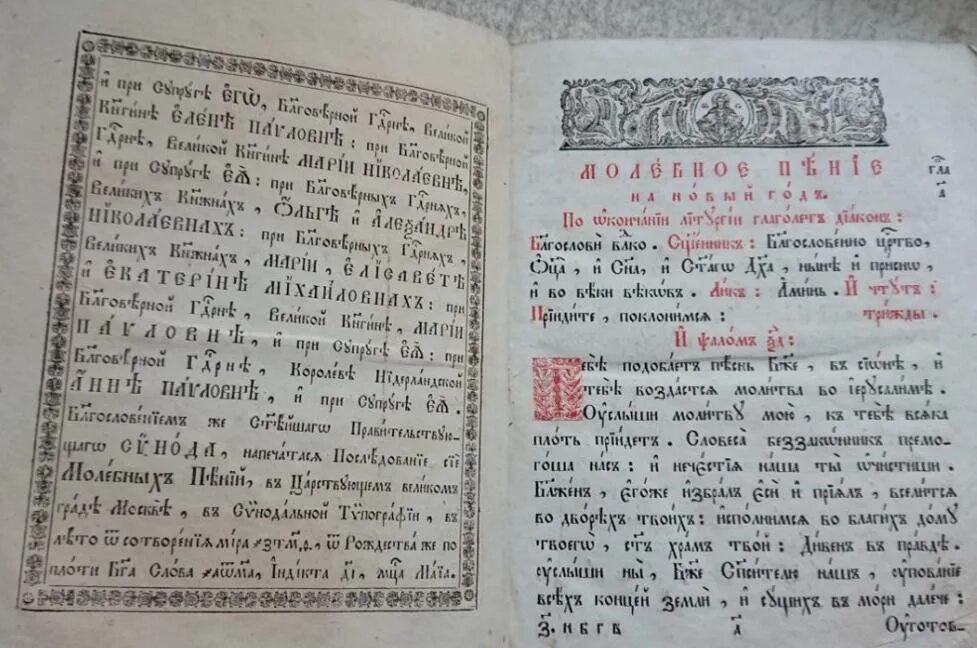 и҆ при Сꙋпрꙋгѣ Є҆гѡ̀, Бл҃говѣрной Гдⷭ҇рнѣ, Великой
Кнѧгинѣ Є҆ленѣ Паѵловнѣ : при Бл҃говѣрной
Гдⷭ҇рнѣ, Великой Кнѧгинѣ Марїи Нїколаевнѣ,
и҆ при Сꙋпрꙋгѣ Є҆ѧ̀ : при Бл҃говѣрныхъ Гдⷭ҇рнѧхъ,
Великихъ Кнѧжнахъ, Ѻ҆льгѣ и҆ А҆леѯандрѣ
Нїколаевнахъ : при Бл҃говѣрныхъ Гдⷭ҇рнѧхъ,
Великихъ Кнѧжнахъ, Марїи, Є҆лїсаветѣ
и҆ Є҆катерінѣ Міхаиловнахъ : при
Бл҃говѣрной Гдⷭ҇рнѣ, Великой Кнѧгинѣ, Марїи
Паѵловнѣ, и҆ при Сꙋпрꙋгѣ Є҆ѧ̀ : при
Бл҃говѣрной Гдⷭ҇рнѣ, Королевѣ Нїдерландской
А҆ннѣ Паѵловнѣ, и҆ при Сꙋпрꙋгѣ Є҆ѧ̀ .
Бл҃гословенїемъ же Ст҃ѣйшагѡ Правительствꙋю-
щагѡ Сѵнода, напечатасѧ Послѣдованїе сїе
Молебныхъ Пѣнїй, въ Царствꙋющемъ великомъ
градѣ Москвѣ, въ Сѵнодальной Тѵпографїи, въ
лѣто ѿ сотворенїѧ мїра ҂зтм҃ѳ, ѿ Рождества же по
плоти Бг҃а Слова ҂аѡм҃а, Індїкта д҃і, мцⷭ҇а Маїа.
Молебное пѣнїе
на новый годъ.
гла́
а҃
По ѡ҆кончанїи лїтꙋргїи глаголетъ дїаконъ :
Бл҃гослови влⷣко . Сщ҃енникъ : Благословенно црⷭ҇тво,
Ѻ҆ц҃а, и҆ Сн҃а, и҆ Ст҃агѡ Дх҃а, нынѣ и҆ приснѡ,
и҆ во вѣки вѣкѡвъ. Ликъ : А҆минь. И҆ чтꙋтъ :
Прїидите, поклонимсѧ : трижды .
И҆ ѱаломъ ѯ҃д :
Тебѣ подобаетъ пѣснь Бж҃е, въ сїѡнѣ, и҆
тебѣ воздастсѧ молитва во і҆ерꙋсалимѣ.
Оу҆слыши молитвꙋ мою, къ тебѣ всѧка
плоть прїидетъ. Словеса беззаконникъ премо-
гоша насъ : и҆ нечестїѧ наша ты ѡ҆чистиши .
Бл҃женъ, є҆гоже и҆збралъ є҆си и҆ прїѧлъ, вселитсѧ
во дворѣхъ твоихъ : и҆сполнимсѧ во благихъ домꙋ
твоегѡ, ст҃ъ храмъ твой : Дивенъ въ правдѣ.
оу҆слыши ны, Бж҃е Спⷭ҇ителю нашъ, оу҆пованїе
всѣхъ концей земли, и҆ сꙋщихъ въ мори далече :
З. н б г в а҃ Оу҆готов-